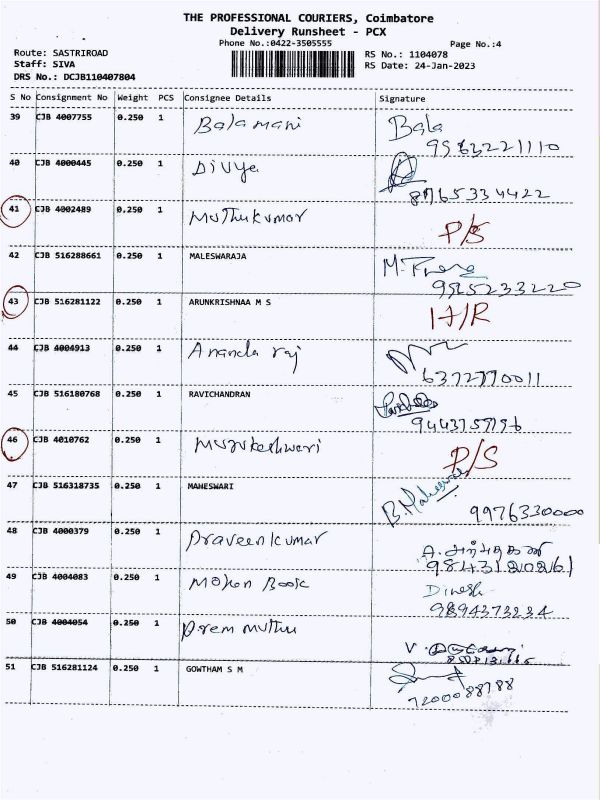 THE PROFESSIONAL COURIERS, Coimbatore
Delivery Runsheet - PCX
Phone No.:0422-3505555 Page No.:4
Route: SASTRIROAD RS No.: 1104078
Staff: SIVA RS Date: 24-Jan-2023
DRS No.: DCJB110407804
S No Consignment No Weight PCS Consignee Details Signature
39 CJB 4007755 0.250 1 Balamani Bala
40 CJB 4000445 0.250 1 Divya
8765334422
41 CJB 4002489 0.250 1 Muthukumar
P/S
42 CJB 516288661 0.250 1 MALESWARAJA
9515233220
43 CJB 516281122 0.250 1 ARUNKRISHNAA M S
44 CJB 4004913 0.250 1 Ananda raj
6372770011
45 CJB 516180768 0.250 1 RAVICHANDRAN
46 CJB 4010762 0.250 1
P/S
47 CJB 516318735 0.250 1 MAHESWARI B. Maheswari
9976330000
48 CJB 4000379 0.250 1 Praveenkumar
49 CJB 4004083 0.250 1 Mohan Book Dinesh
9894373234
50 CJB 4004054 0.250 1 Prem muthu
51 CJB 516281124 0.250 1 GOWTHAM S M
7200088788